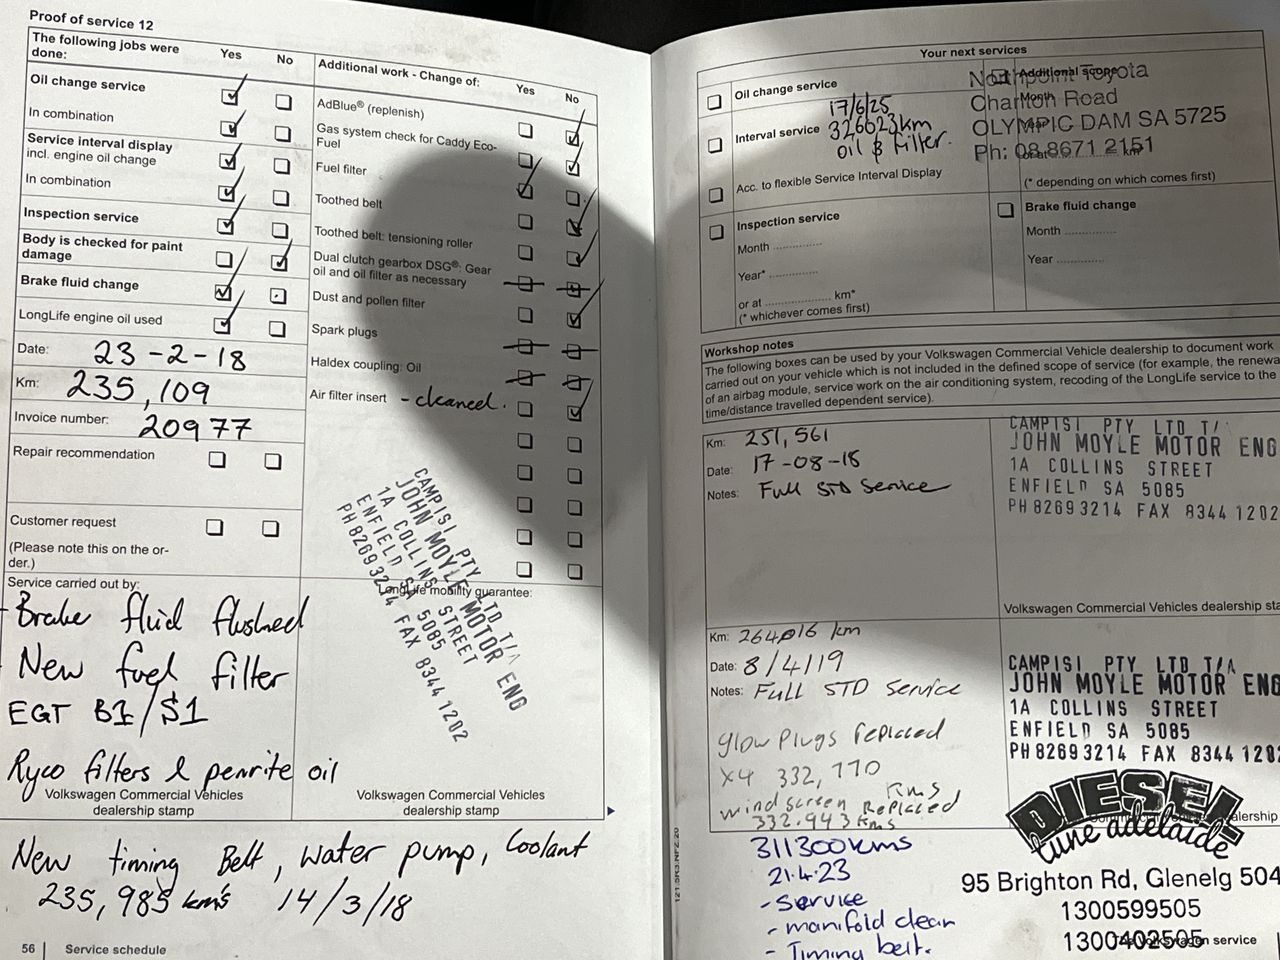 Proof of service 12
The following jobs were done:
Yes
No
Oil change service
In combination
Service interval display
incl. engine oil change
In combination
Inspection service
Body is checked for paint
damage
Brake fluid change
LongLife engine oil used
Date: 23-2-18
Km: 235,109
Invoice number: 20977
Repair recommendation
Customer request
(Please note this on the or-
der.)
Service carried out by:
- Brake fluid flushed
New fuel filter
EGT B1/S1
Ryco filters & penrite oil
Volkswagen Commercial Vehicles
dealership stamp
Additional work - Change of:
Yes
No
AdBlue® (replenish)
Gas system check for Caddy Eco-
Fuel
Fuel filter
Toothed belt
Toothed belt: tensioning roller
Dual clutch gearbox DSG®: Gear
oil and oil filter as necessary
Dust and pollen filter
Spark plugs
Haldex coupling: Oil
Air filter insert - cleaned.
CAMPISI PTY LTD T/A
JOHN MOYLE MOTOR ENG
1A COLLINS STREET
ENFIELD SA 5085
PH 8269 3214 FAX 8344 1202
LongLife mobility guarantee:
Volkswagen Commercial Vehicles
dealership stamp
New timing Belt, water pump, Coolant
235,985 km's 14/3/18
56 Service schedule
Your next services
Oil change service
17/6/25
Interval service 326023km
oil & filter.
Acc. to flexible Service Interval Display
Inspection service
Month
Year*
or at km*
(* whichever comes first)
Additional scope
Month
Northpoint Toyota
Charlton Road
OLYMPIC DAM SA 5725
Ph: 08 8671 2151
or at km*
(* depending on which comes first)
Brake fluid change
Month
Year
Workshop notes
The following boxes can be used by your Volkswagen Commercial Vehicle dealership to document work
carried out on your vehicle which is not included in the defined scope of service (for example, the renewa
of an airbag module, service work on the air conditioning system, recoding of the LongLife service to the
time/distance travelled dependent service).
Km: 251,561
Date: 17-08-18
Notes: Full STD Service
CAMPISI PTY LTD T/
JOHN MOYLE MOTOR ENG
1A COLLINS STREET
ENFIELD SA 5085
PH 8269 3214 FAX 8344 1202
Volkswagen Commercial Vehicles dealership sta
Km: 264016 km
Date: 8/4/19
Notes: Full STD Service
glow plugs replaced
x4 332,770 kms
windscreen Replaced
332.943 kms
CAMPISI PTY LTD T/A
JOHN MOYLE MOTOR ENG
1A COLLINS STREET
ENFIELD SA 5085
PH 8269 3214 FAX 8344 1202
DIESEL
tune adelaide
95 Brighton Rd, Glenelg 504
1300599505
1300402505
311300kms
21.4.23
- service
- manifold clean
- Timing belt.
121.5R3.NFZ.20
The Volkswagen service